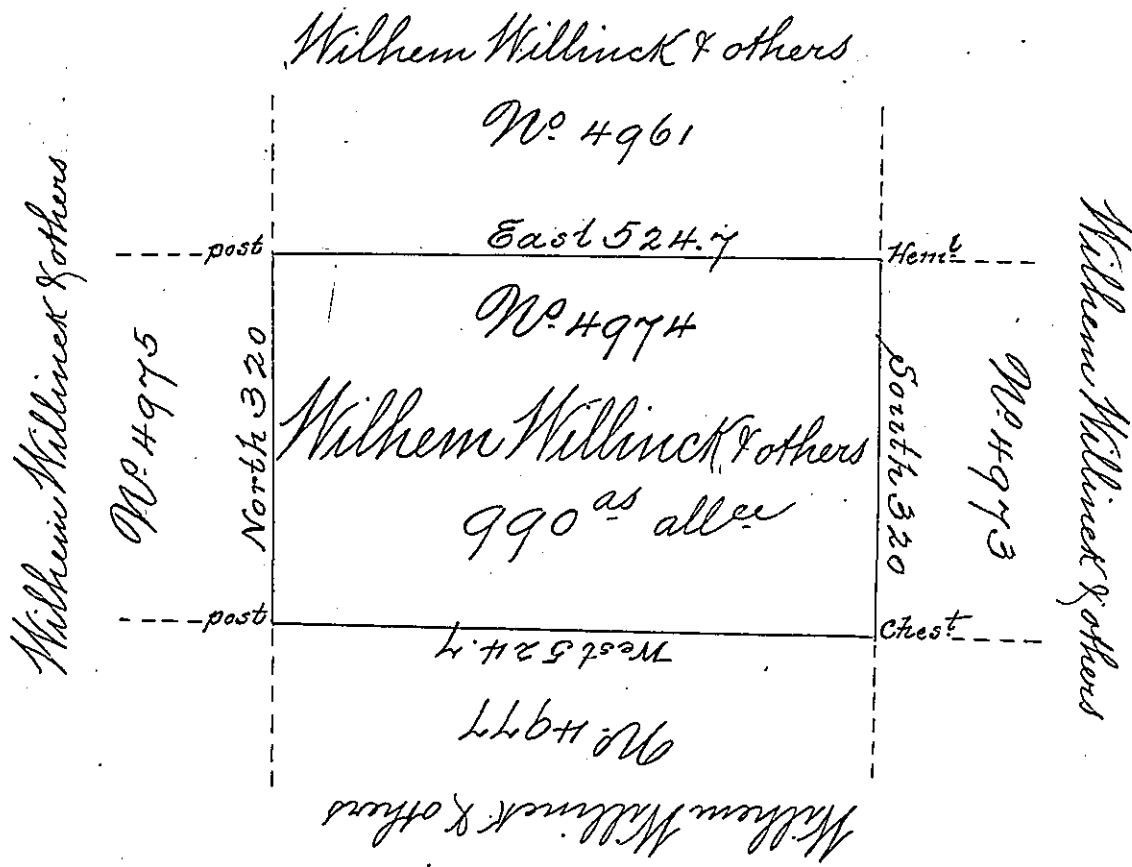 Wilhem Willinck & others
Nº 4961
East 524.7
post
Hemᵏ
Wilhem Willinck & others
Nº 4975
North 320
Nº 4974
Wilhem Willinck & others
990 ᵃˢ allᶜᵉ
South 320
Nº 4973
Wilhem Willinck & others
post
Chesᵗ
West 524.7
Nº 4977
Wilhem Willinck & others